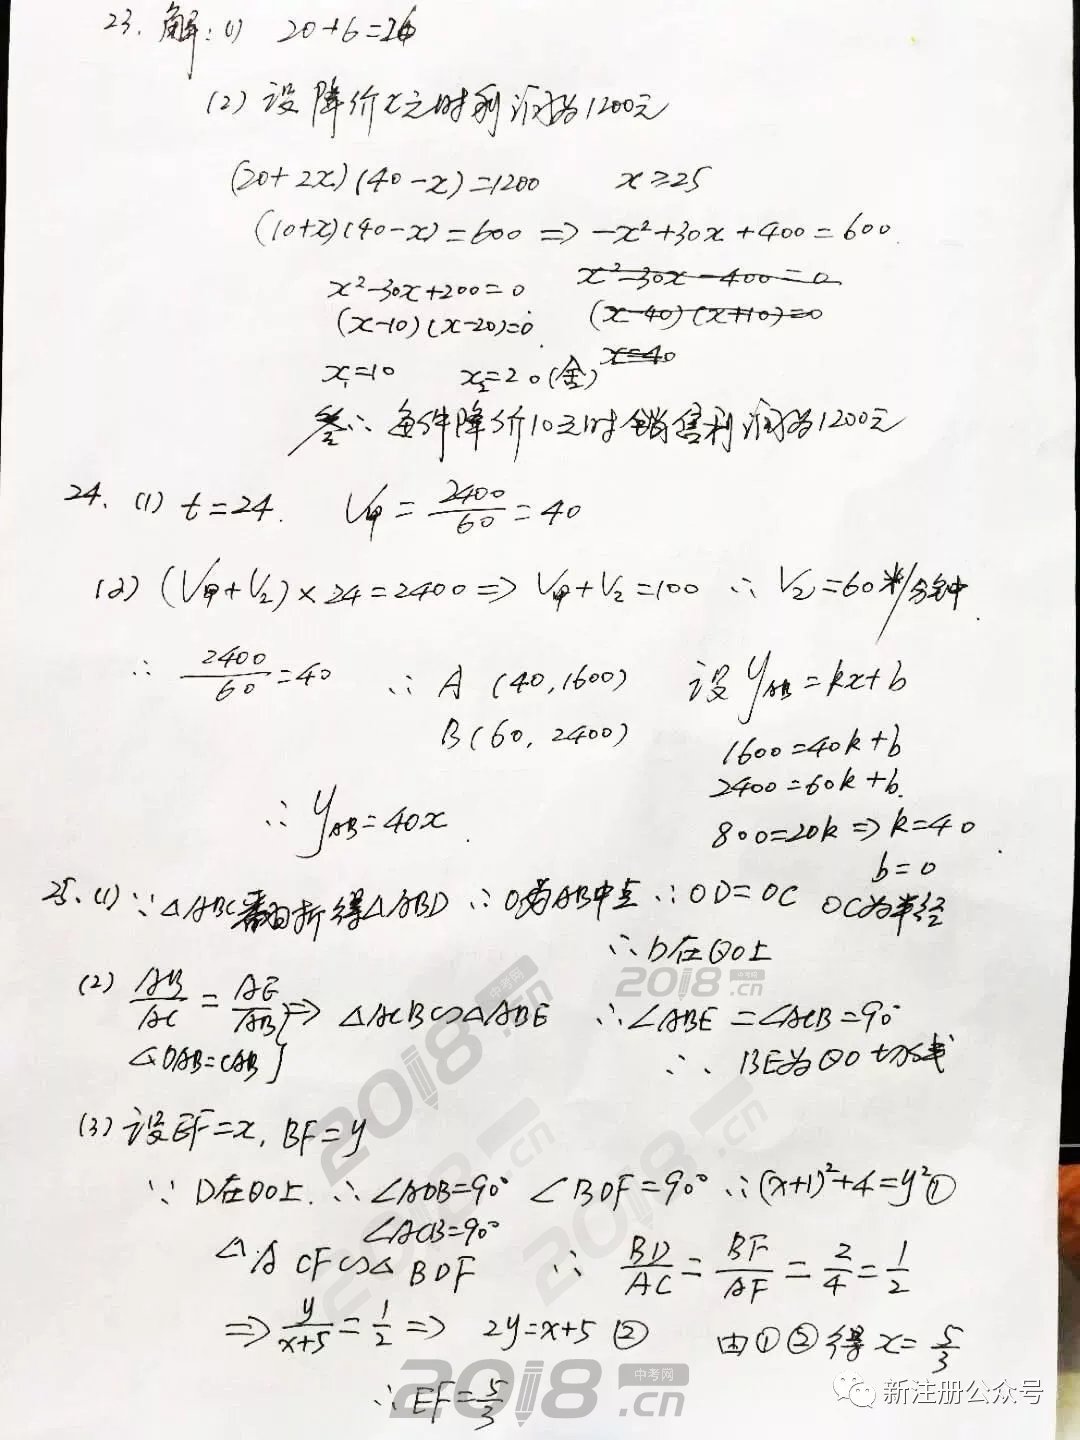 23. 解:(1) 20+6=26
(2) 设降价x元时利润为1200元
(20+2x)(40-x)=1200 x≥25
(10+x)(40-x)=600 => -x²+30x+400=600.
x²-30x+200=0 x²-30x-400=0
(x-10)(x-20)=0. (x-40)(x+10)=0
x=40
x₁=10 x₂=20(舍)
答:每件降价10元时销售利润为1200元
24. (1) t=24. V甲=2400/60=40
(2) (V甲+V乙)×24=2400=>V甲+V乙=100 ∴V乙=60米/分钟.
∴ 2400/60=40 ∴ A (40,1600) 设yAB=kx+b
B(60,2400) 1600=40k+b
2400=60k+b.
∴ yAB=40x. 800=20k=>k=40
b=0
25.(1)∵△ABC翻折得△ABD ∴O为AB中点∴OD=OC OC为半径
∴D在⊙O上
(2) AB/AC=AE/AB}=> △ACB∽△ABE ∴∠ABE=∠ACB=90°
∠DAB=CAB} ∴BE为⊙O切线
(3)设EF=x,BF=y
∵D在⊙O上.∴∠ADB=90° ∠BDF=90°∴(x+1)²+4=y²①
∠ACB=90°
△ACF∽△BDF ∴ BD/AC=BF/AF=2/4=1/2
=>y/(x+5)=1/2=> 2y=x+5② 由①②得x=5/3
∴EF=5/3
2018.cn
中考网
新注册公众号